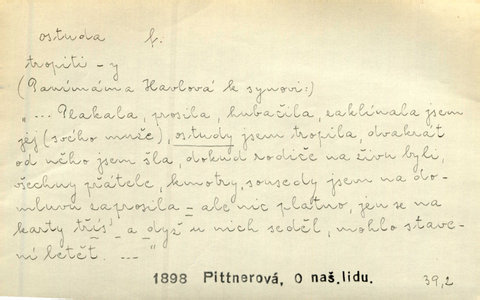 ostuda f.
tropiti - y
(Panímáma Havlová k synovi:)
"... Plakala, prosila, hubačila, zaklínala jsem
jej (svého muže), ostudy jsem tropila, dvakrát
od něho jsem šla, dokud rodiče na živu byli,
všechny přátele, kmotry, sousedy jsem na do-
mluvu zaprosila - ale nic platno, jen se na
karty třís' - a dyž u nich seděl, mohlo stave-
ní letět. ... "
1898 Pittnerová, O naš.lidu.
39,2